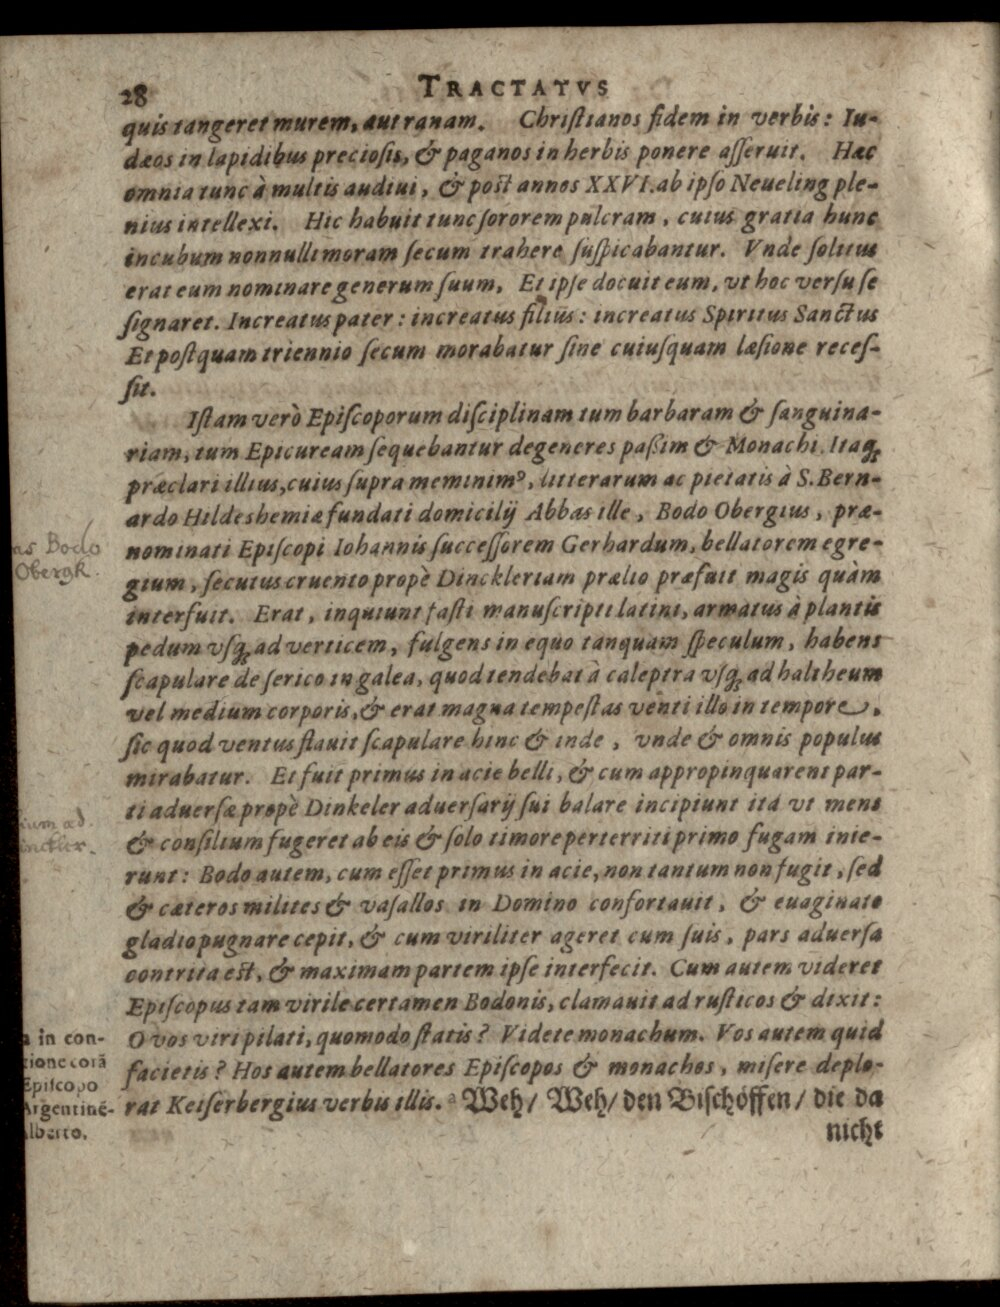 28 TRACTATVS
quis tangeret murem, aut ranam. Christianos fidem in verbis: Iu-
dæos in lapidibus preciosis, & paganos in herbis ponere asseruit. Hæc
omnia tunc à multis audiui, & post annos XXVI. ab ipso Neueling ple-
nius intellexi. Hic habuit tunc sororem pulcram, cuius gratia hunc
incubum nonnulli moram secum trahere suspicabantur. Vnde solitus
erat eum nominare generum suum, Et ipse docuit eum, vt hoc versu se
signaret. Increatus pater: increatus filius: increatus Spiritus Sanctus
Et postquam triennio secum morabatur sine cuiusquam læsione reces-
sit.
Istam verò Episcoporum disciplinam tum barbaram & sanguina-
riam, tum Epicuream sequebantur degeneres paßim & Monachi. Itaq;
præclari illius, cuius supra meminimꝰ, litterarum ac pietatis à S. Bern-
ardo Hildeshemiæ fundati domicilij Abbas ille, Bodo Obergius, præ-
nominati Episcopi Iohannis successorem Gerhardum, bellatorem egre-
as Bodo
Obergk.
gium, secutus cruento propè Dinckleriam prælio præfuit magis quàm
interfuit. Erat, inquiunt fasti manuscripti latini, armatus à plantis
pedum vsq; ad verticem, fulgens in equo tanquam speculum, habens
scapulare de serico in galea, quod tendebat à caleptra vsq; ad haltheum
vel medium corporis, & erat magna tempestas venti illo in tempore,
sic quod ventus flauit scapulare hinc & inde, vnde & omnis populus
mirabatur. Et fuit primus in acie belli, & cum appropinquarent par-
ti aduersæ propè Dinkeler aduersarij sui balare incipiunt ita vt mens
& consilium fugeret ab eis & solo timore perterriti primo fugam inie-
runt: Bodo autem, cum esset primus in acie, non tantum non fugit, sed
& cæteros milites & vasallos in Domino confortauit, & euaginato
gladio pugnare cepit, & cum viriliter ageret cum suis, pars aduersa
contrita est, & maximam partem ipse interfecit. Cum autem videret
Episcopus tam virile certamen Bodonis, clamauit ad rusticos & dixit:
O vos viri pilati, quomodo statis? Videte monachum. Vos autem quid
facietis? Hos autem bellatores Episcopos & monachos, misere deplo-
rat Keiserbergius verbis illis. a Weh/ Weh/ den Bischöffen/ die da
a in con-
tione corā
Episcopo
Argentinē-
lberto.
nicht